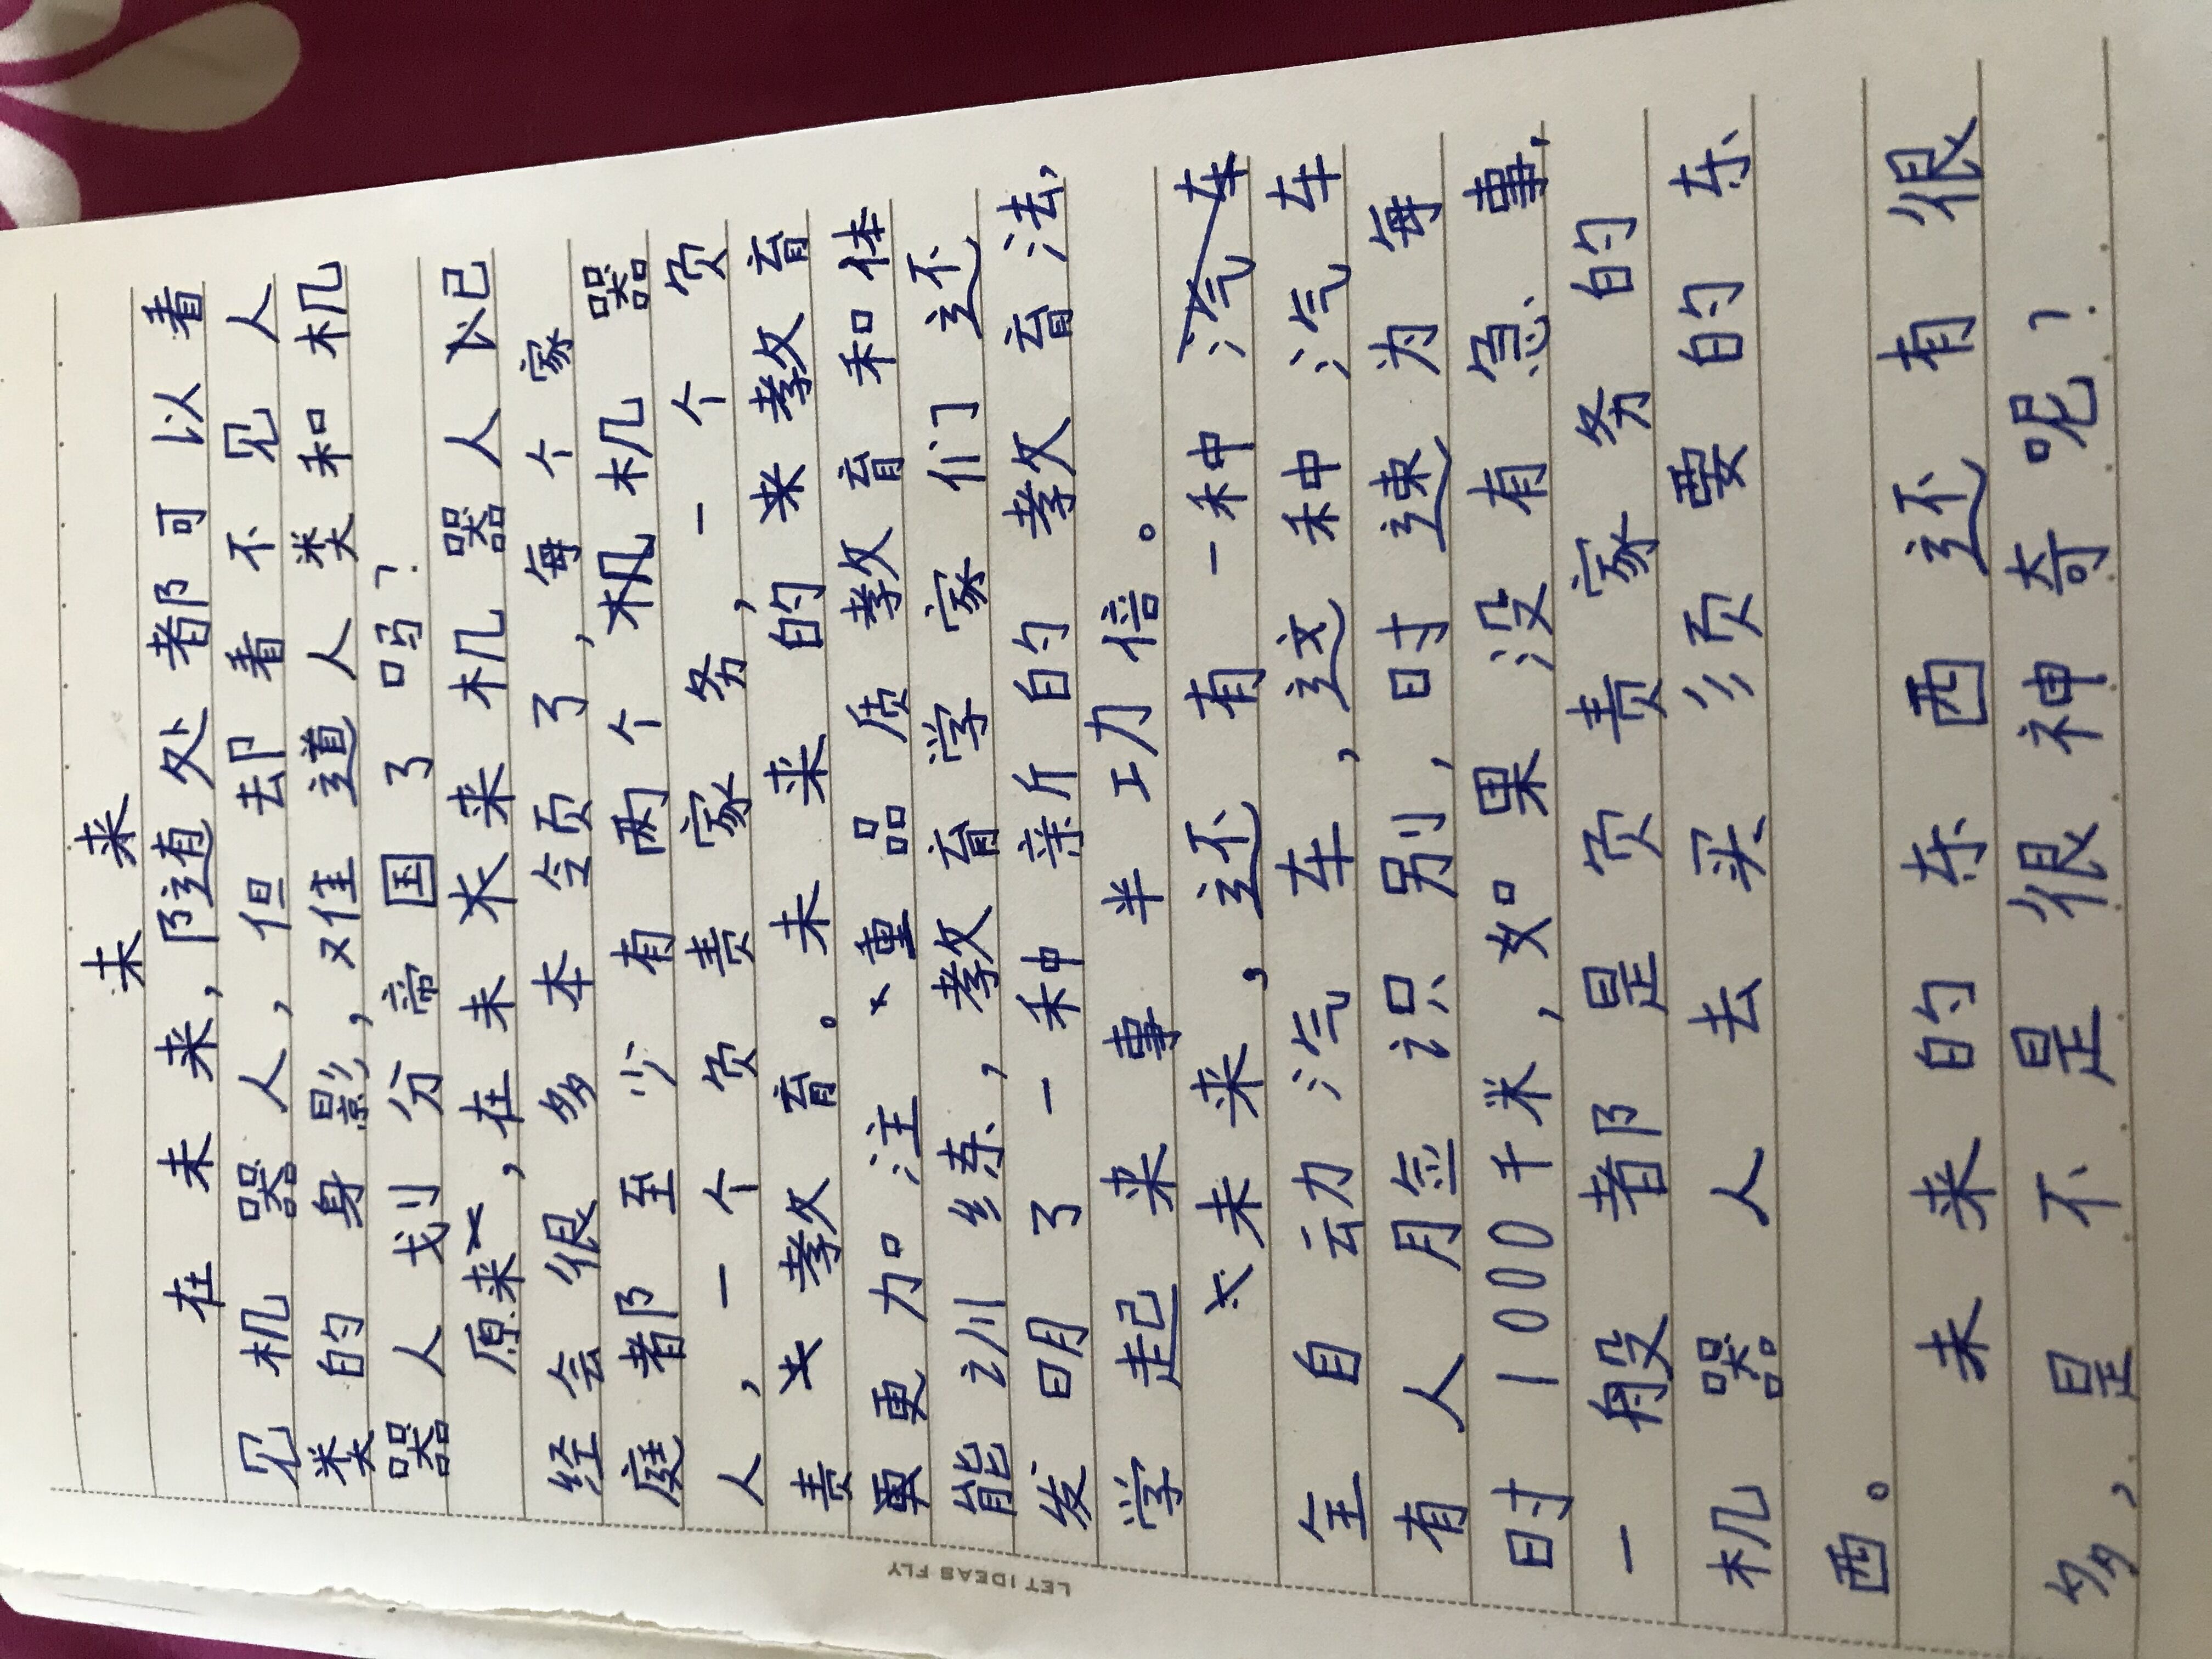 未来
在未来,随处都可以看
见机器人,但却看不见人
类的身影,难道人类和机
器人划分帝国了吗?
原来,在未来机器人已
经会很多本领了,每个家
庭都至少有两个机器
人,一个负责家务,一个负
责教育。未来的教育
要更加注重品质教育和体
能训练,教育学家们还
发明了一种新的教育法,
学起来事半功倍。
未来,还有一种
全自动汽车,这种汽车
有人脸识别,时速为每
时1000千米,如果没有急事,
一般都是负责家务的
机器人去买必须要的东
西。
未来的东西还有很
多,是不是很神奇呢?
LET IDEAS FLY